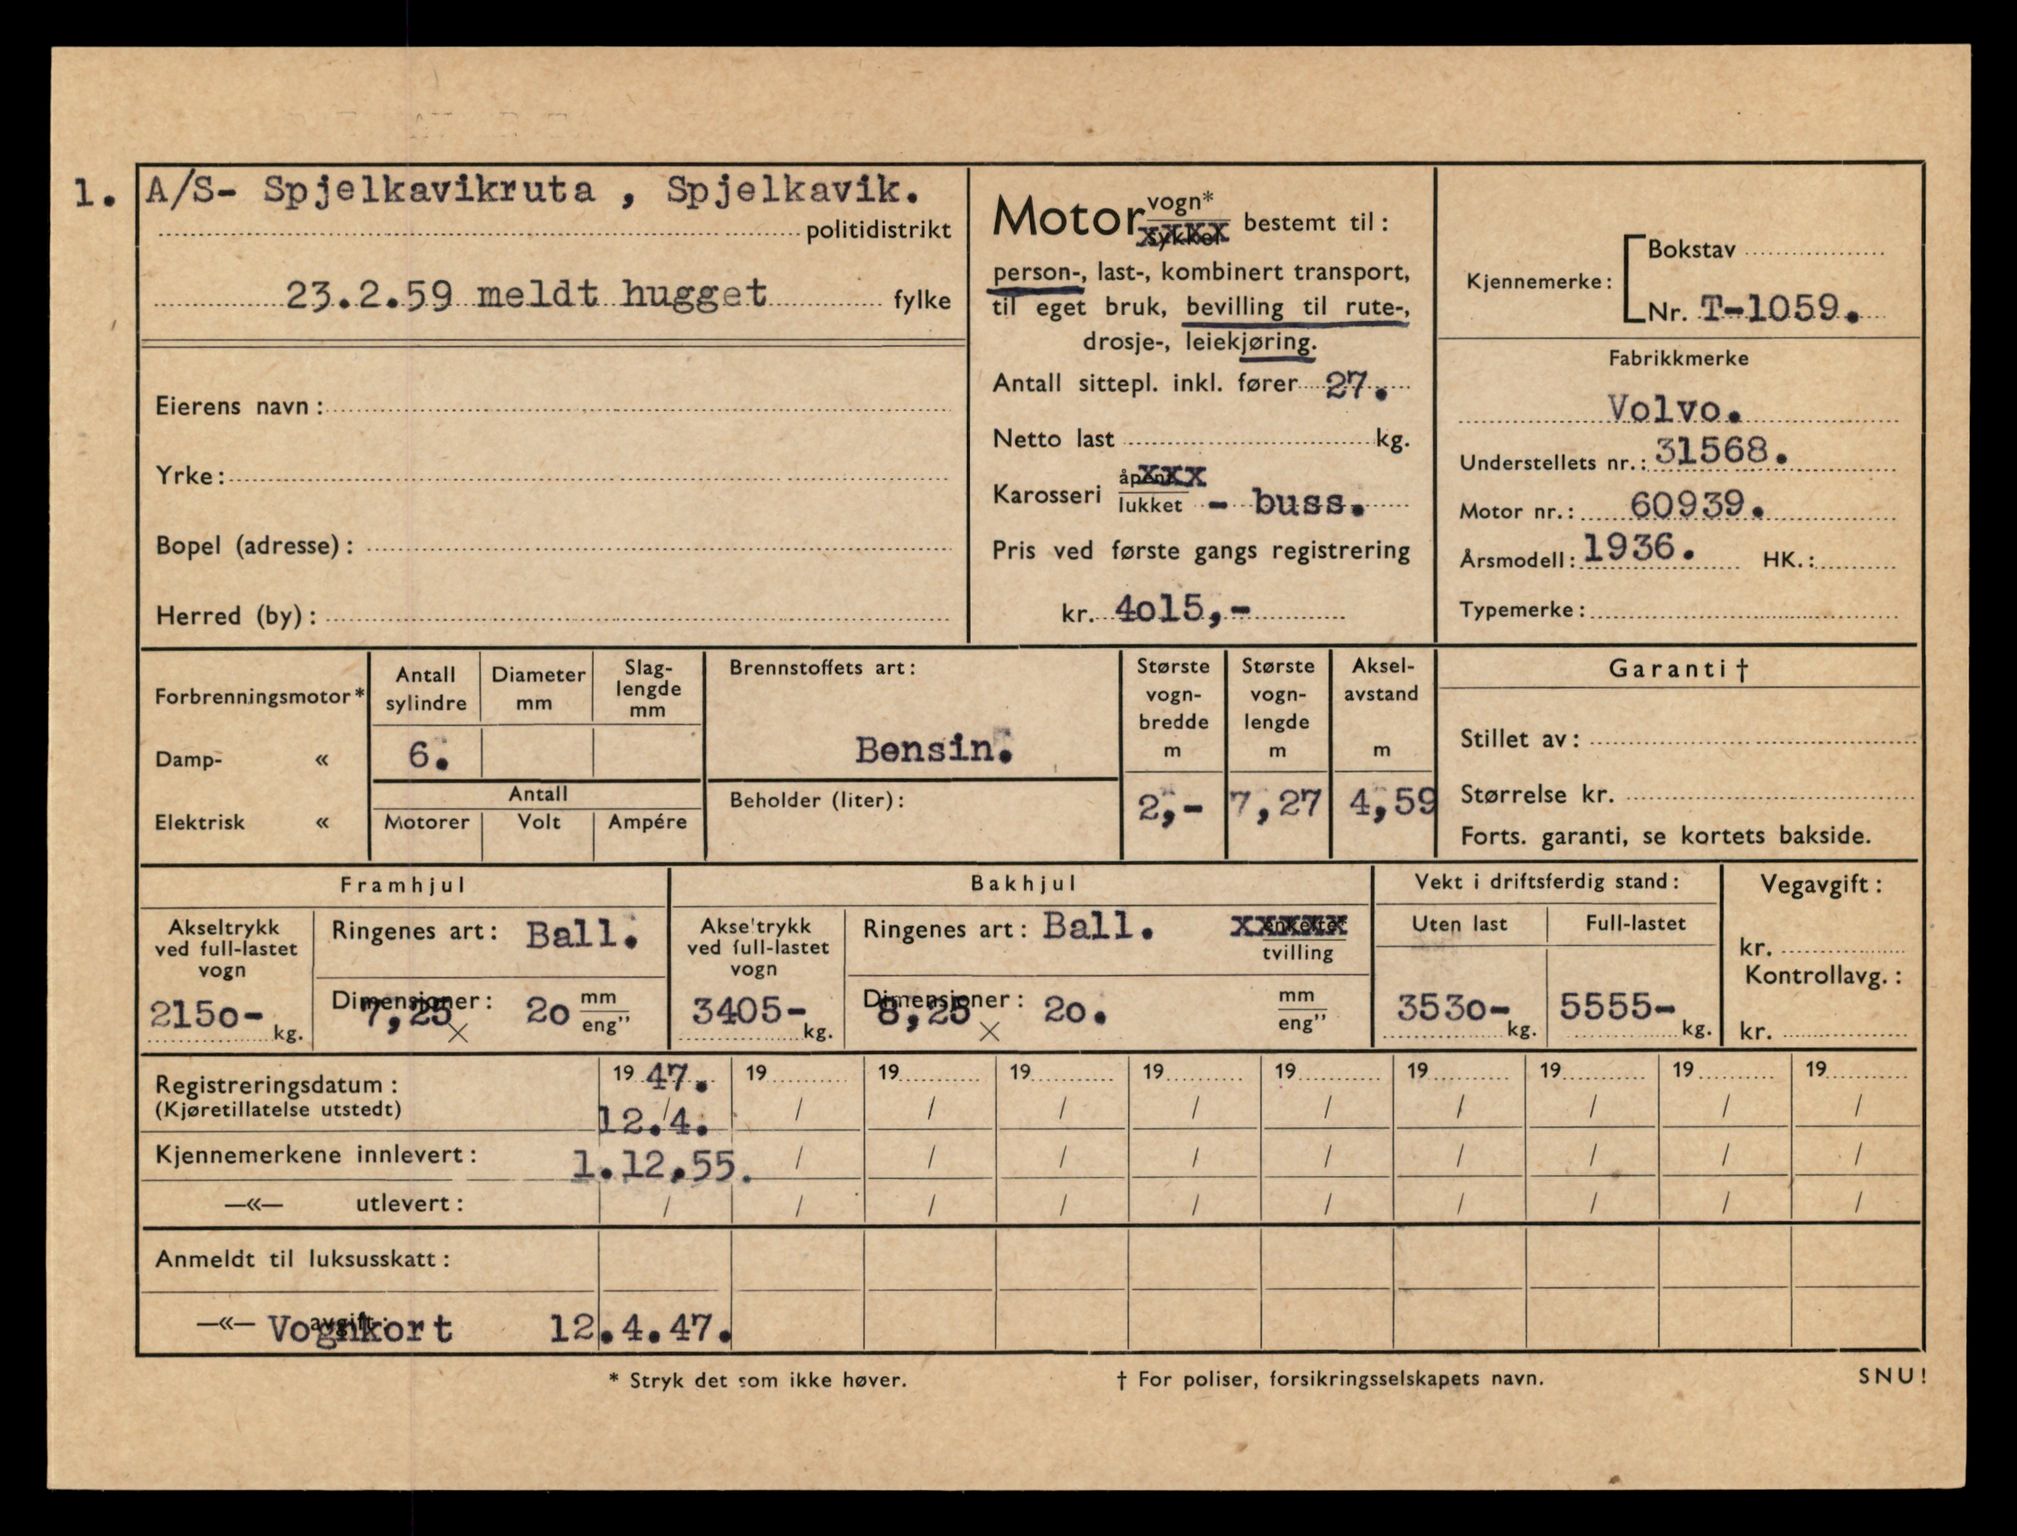 1. A/S- Spjelkavikruta , Spjelkavik.
politidistrikt
23.2.59 meldt hugget fylke
Eierens navn:
Yrke:
Bopel (adresse):
Herred (by):
Motor vogn* bestemt til:
sykkel
person-, last-, kombinert transport,
til eget bruk, bevilling til rute-,
drosje-, leiekjøring.
Antall sittepl. inkl. fører 27.
Netto last kg.
Karosseri åpent xxx
lukket - buss.
Pris ved første gangs registrering
kr. 4015,-
Kjennemerke: Bokstav
Nr. T-1059.
Fabrikkmerke
Volvo.
Understellets nr.: 31568.
Motor nr.: 60939.
Årsmodell: 1936. HK.:
Typemerke:
Forbrenningsmotor*
Damp- «
Elektrisk «
Antall sylindre
Diameter mm
Slag-lengde mm
6.
Antall
Motorer Volt Ampére
Brennstoffets art:
Bensin.
Beholder (liter):
Største vogn-bredde m
Største vogn-lengde m
Aksel-avstand m
2,- 7,27 4,59
Garanti †
Stillet av:
Størrelse kr.
Forts. garanti, se kortets bakside.
Framhjul
Akseltrykk
ved full-lastet
vogn
2150- kg.
Ringenes art: Ball.
Dimensjoner: 7,25 × 20 mm
eng”
Bakhjul
Akseltrykk
ved full-lastet
vogn
3405- kg.
Ringenes art: Ball. xxxxx enkelte*
tvilling
Dimensjoner: 8,25 × 20. mm
eng”
Vekt i driftsferdig stand:
Uten last Full-lastet
3530- kg. 5555- kg.
Vegavgift:
kr.
Kontrollavg.:
kr.
Registreringsdatum: 19 47. 19 19 19 19 19 19 19 19 19
(Kjøretillatelse utstedt) 12.4. / / / / / / / / /
Kjennemerkene innlevert: 1.12.55. / / / / / / / / /
—«— utlevert: / / / / / / / / / /
Anmeldt til luksusskatt:
—«— avgift: Vognkort 12.4.47.
* Stryk det som ikke høver. † For poliser, forsikringsselskapets navn. SNU!